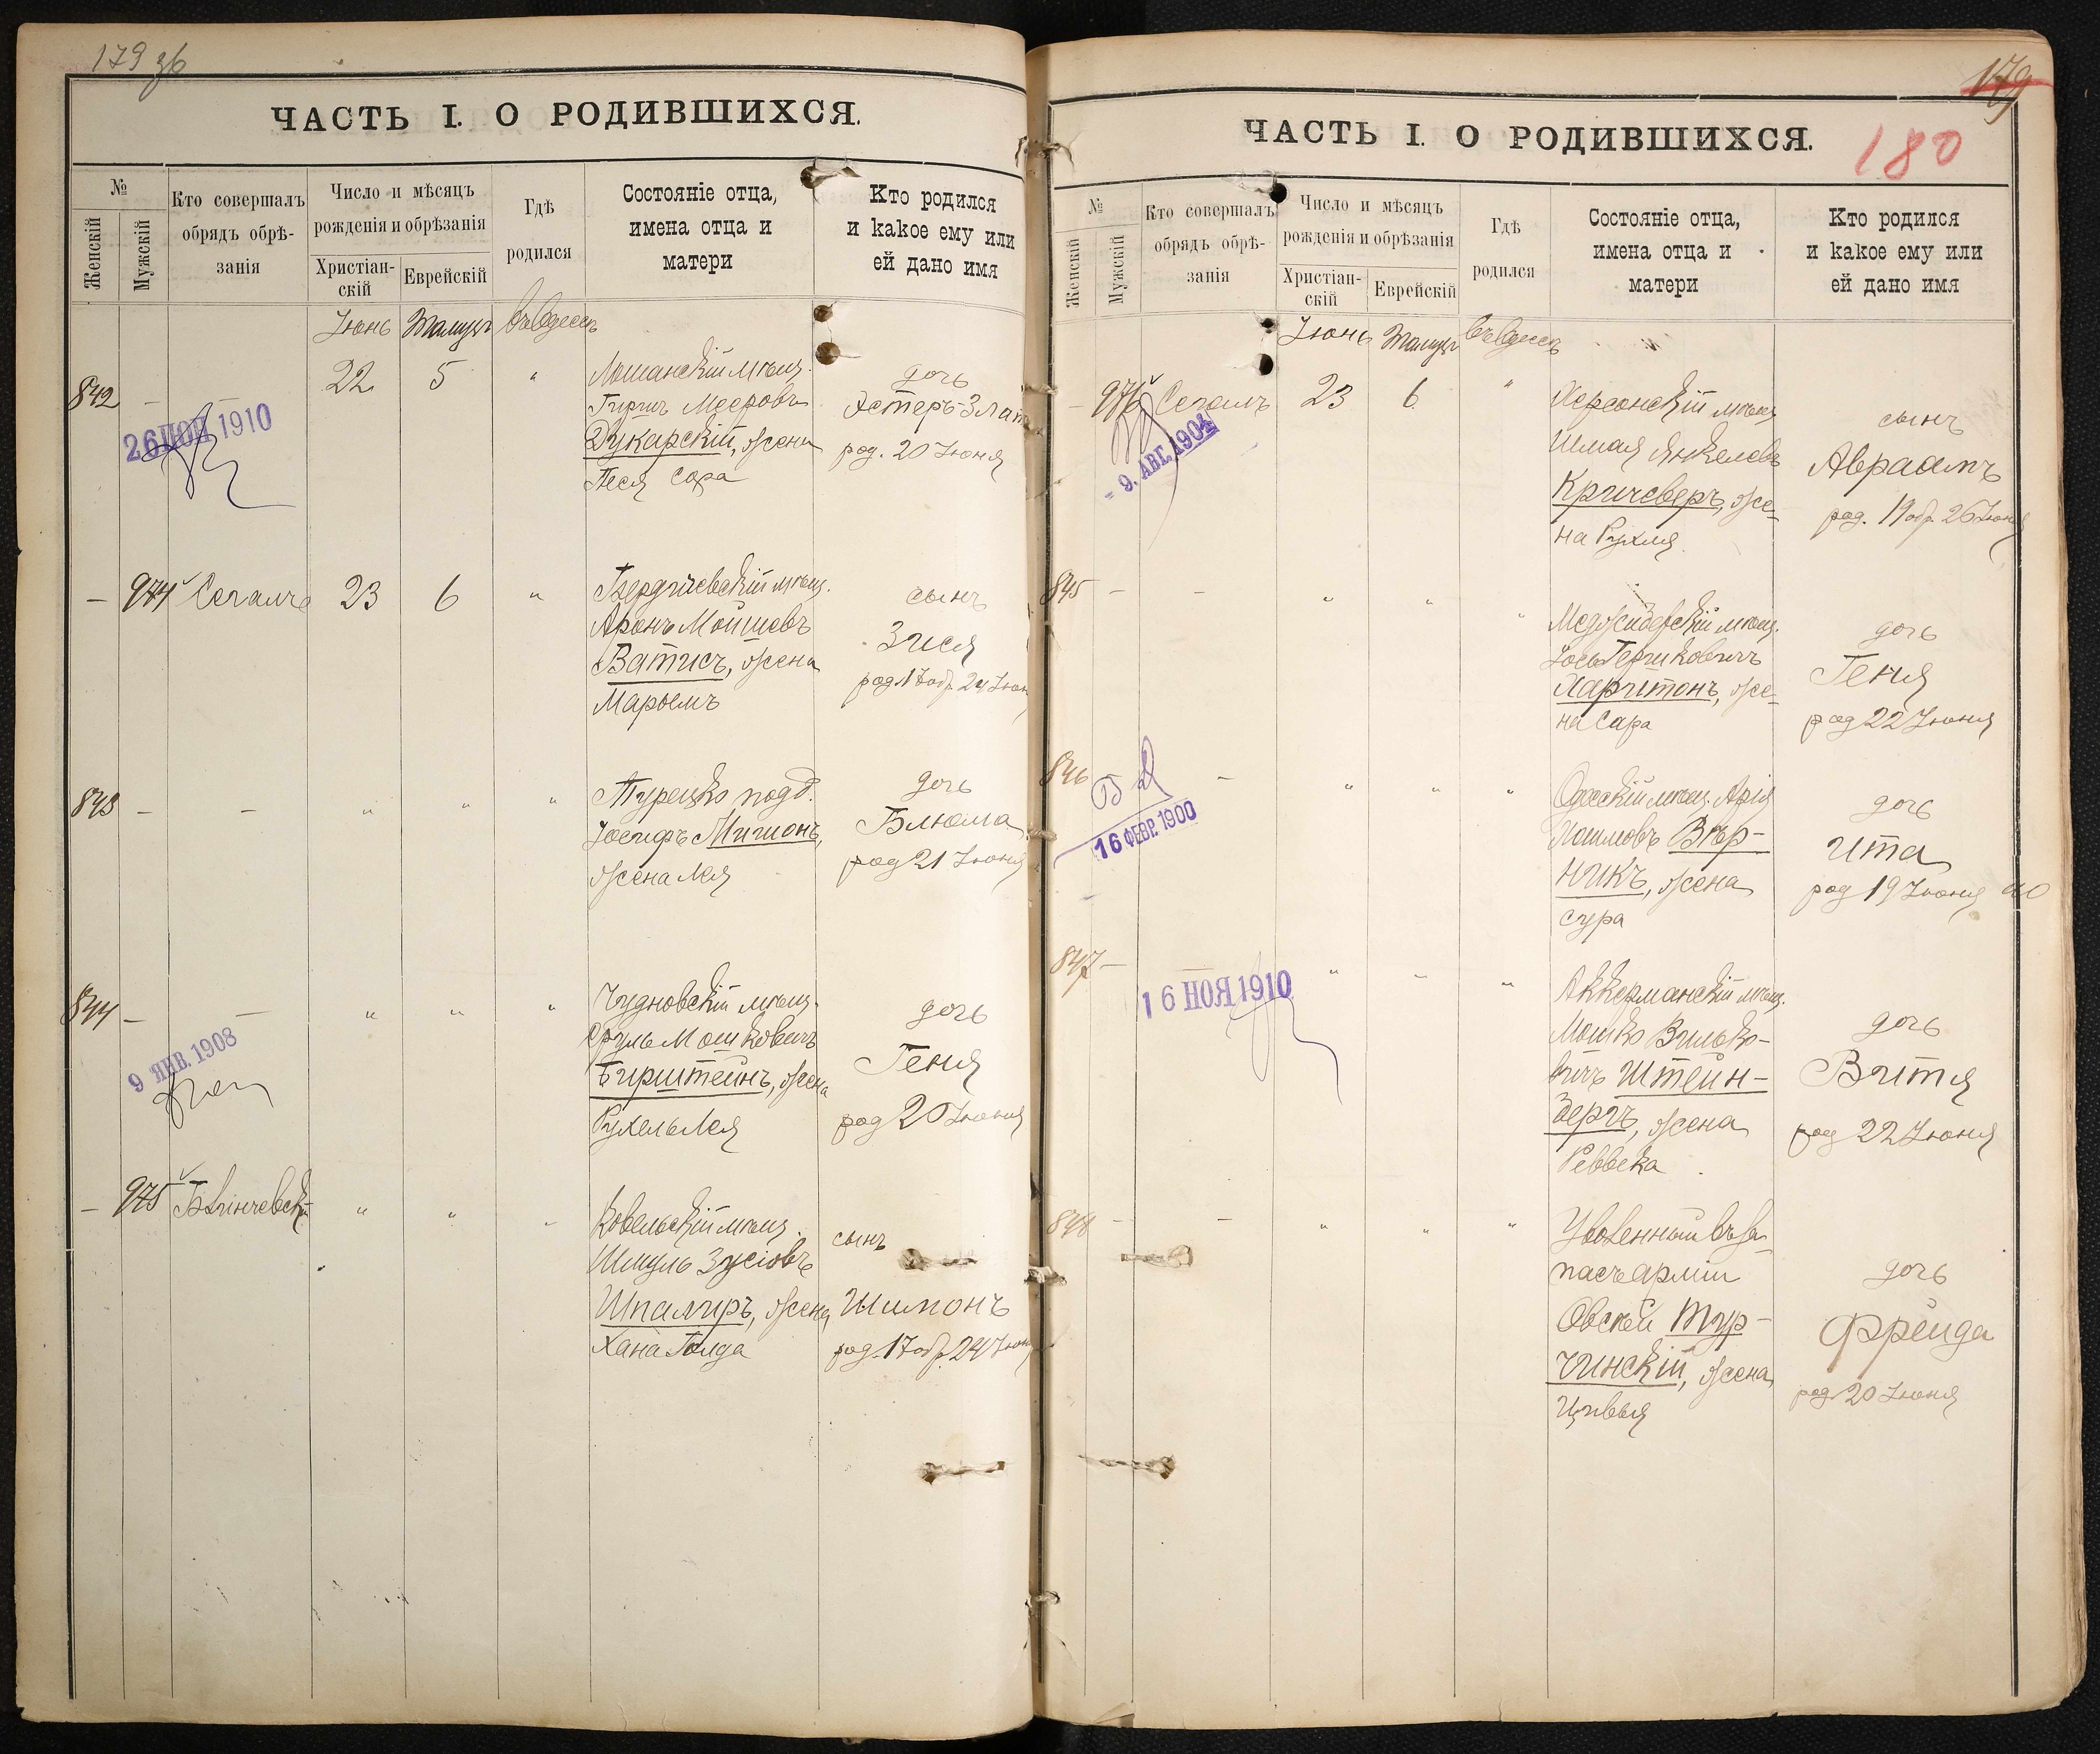 179 зб
ЧАСТЬ I. О РОДИВШИХСЯ.
№
Женскій
Мужскій
Кто совершалъ
обрядъ обрѣ-
занія
Число и мѣсяцъ
рожденія и обрѣзанія
Христіан-
скій
Еврейскій
Гдѣ
родился
Состояніе отца,
имена отца и
матери
Кто родился
и какое ему или
ей дано имя
Іюнь Тамузъ въ Одессѣ
842 — — 22 5 "
26 НОЯ 1910
мѣщ.
Мееровъ
Дукарскій, жена
Песя Сора
дочь
Эстеръ-Злата
род. 20 Іюня
— 974 Сегалъ 23 6 "
Бердичевскій мѣщ.
Аронъ Мойшевъ
Ватисъ, жена
Марьемъ
сынъ
Зися
род. 17 обр. 24 Іюня
843 — — " " "
Турецко подд.
Іосифъ Мигионъ,
жена Лея
дочь
Блюма
род 21 Іюня
844 — — " " "
9 ЯНВ. 1908
Чудновскій мѣщ.
Сруль Мошковичъ
Бирштейнъ, жена
Рухель Лея
дочь
Геня
род 20 Іюня
— 975 " " "
Ковельскій мѣщ.
Шмуль Зусіовъ
Шпалиръ, жена
Хана Голда
сынъ
Шимонъ
род. 17 обр. 24 Іюня
179
180
ЧАСТЬ I. О РОДИВШИХСЯ.
№
Женскій
Мужскій
Кто совершалъ
обрядъ обрѣ-
занія
Число и мѣсяцъ
рожденія и обрѣзанія
Христіан-
скій
Еврейскій
Гдѣ
родился
Состояніе отца,
имена отца и
матери
Кто родился
и какое ему или
ей дано имя
Іюнь Тамузъ въ Одессѣ
— 976 Сегалъ 23 6 "
- 9. АВГ. 1904
Херсонскій мѣщ.
Шмая Янкелевъ
Кричеверъ, же-
на Рухля
сынъ
Авраамъ
род. 19 обр. 26 Іюня
845 — — " " "
Меджибожскій мѣщ.
Іось Гершковичъ
Харитонъ, же-
на Сара
дочь
Геня
род 22 Іюня
846 — " " "
16 ФЕВР. 1900
Одесскій мѣщ. Арія
Хаимовъ Вѣр-
никъ, жена
Сура
дочь
Ита
род 19 Іюня
847 — — " " "
16 НОЯ 1910
Аккерманскій мѣщ.
Мошко Вилько-
вичъ Штейн-
бергъ, жена
Реввека
дочь
Витя
род 22 Іюня
848 — — " " "
Уволенный въ за-
пасъ арміи
Овсей Тур-
чинскій, жена
Цивья
дочь
Фрейда
род. 20 Іюня